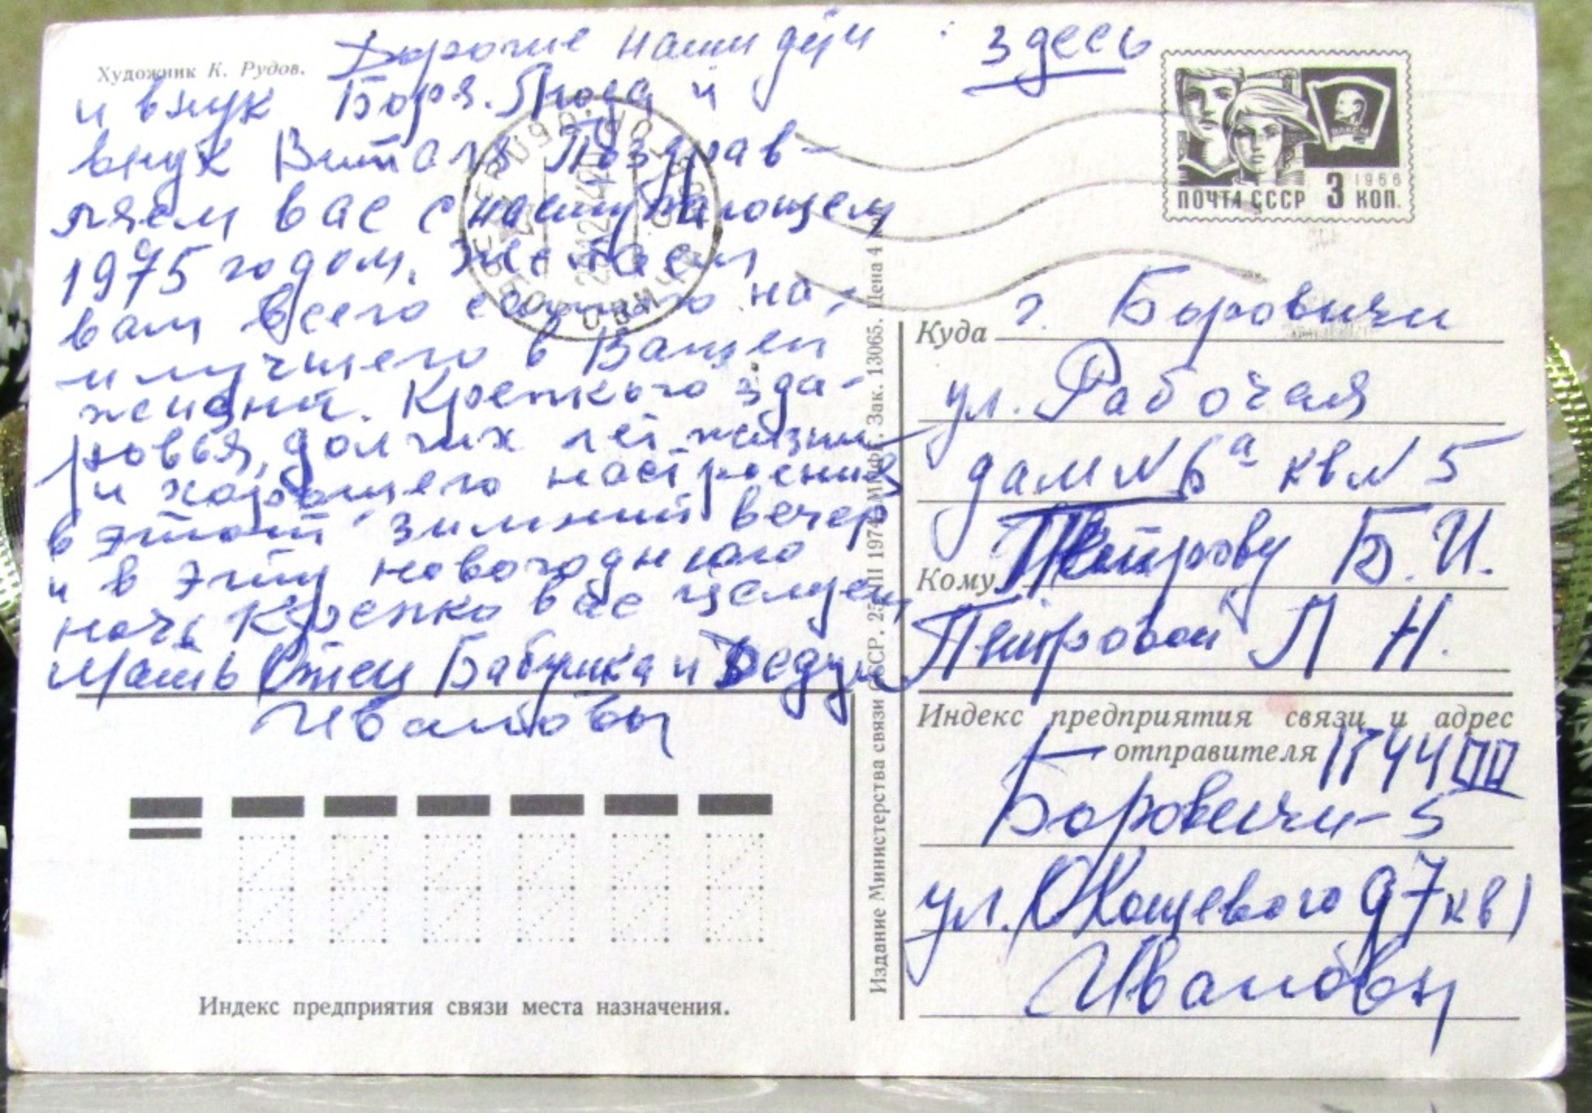 Художник К. Рудов.
Дорогие наши дети
и внук Боря. Люда и
внук Виталя Поздрав-
ляем вас с наступающем
1975 годом. Желаем
вам всего самого на-
илучшего в Вашей
жизни. Крепкого здо-
ровья, долгих лет жизни
и хорошего настроения
в этот зимний вечер
и в эту новогоднюю
ночь Крепко вас целуем
Мать Отец Бабушка и Дедуш
Ивановы
здесь
ВЛКСМ
1966
ПОЧТА СССР 3 КОП.
Куда г. Боровичи
ул. Рабочая
дам № 6а кв № 5
Кому Петрову Б. И.
Петровой Л Н.
Индекс предприятия связи и адрес
отправителя 174400
Боровичи-5
ул. О Кошевого 97 кв 1
Ивановы
Издание Министерства связи СССР. 1974. Зак. 13065. Цена 4
Индекс предприятия связи места назначения.